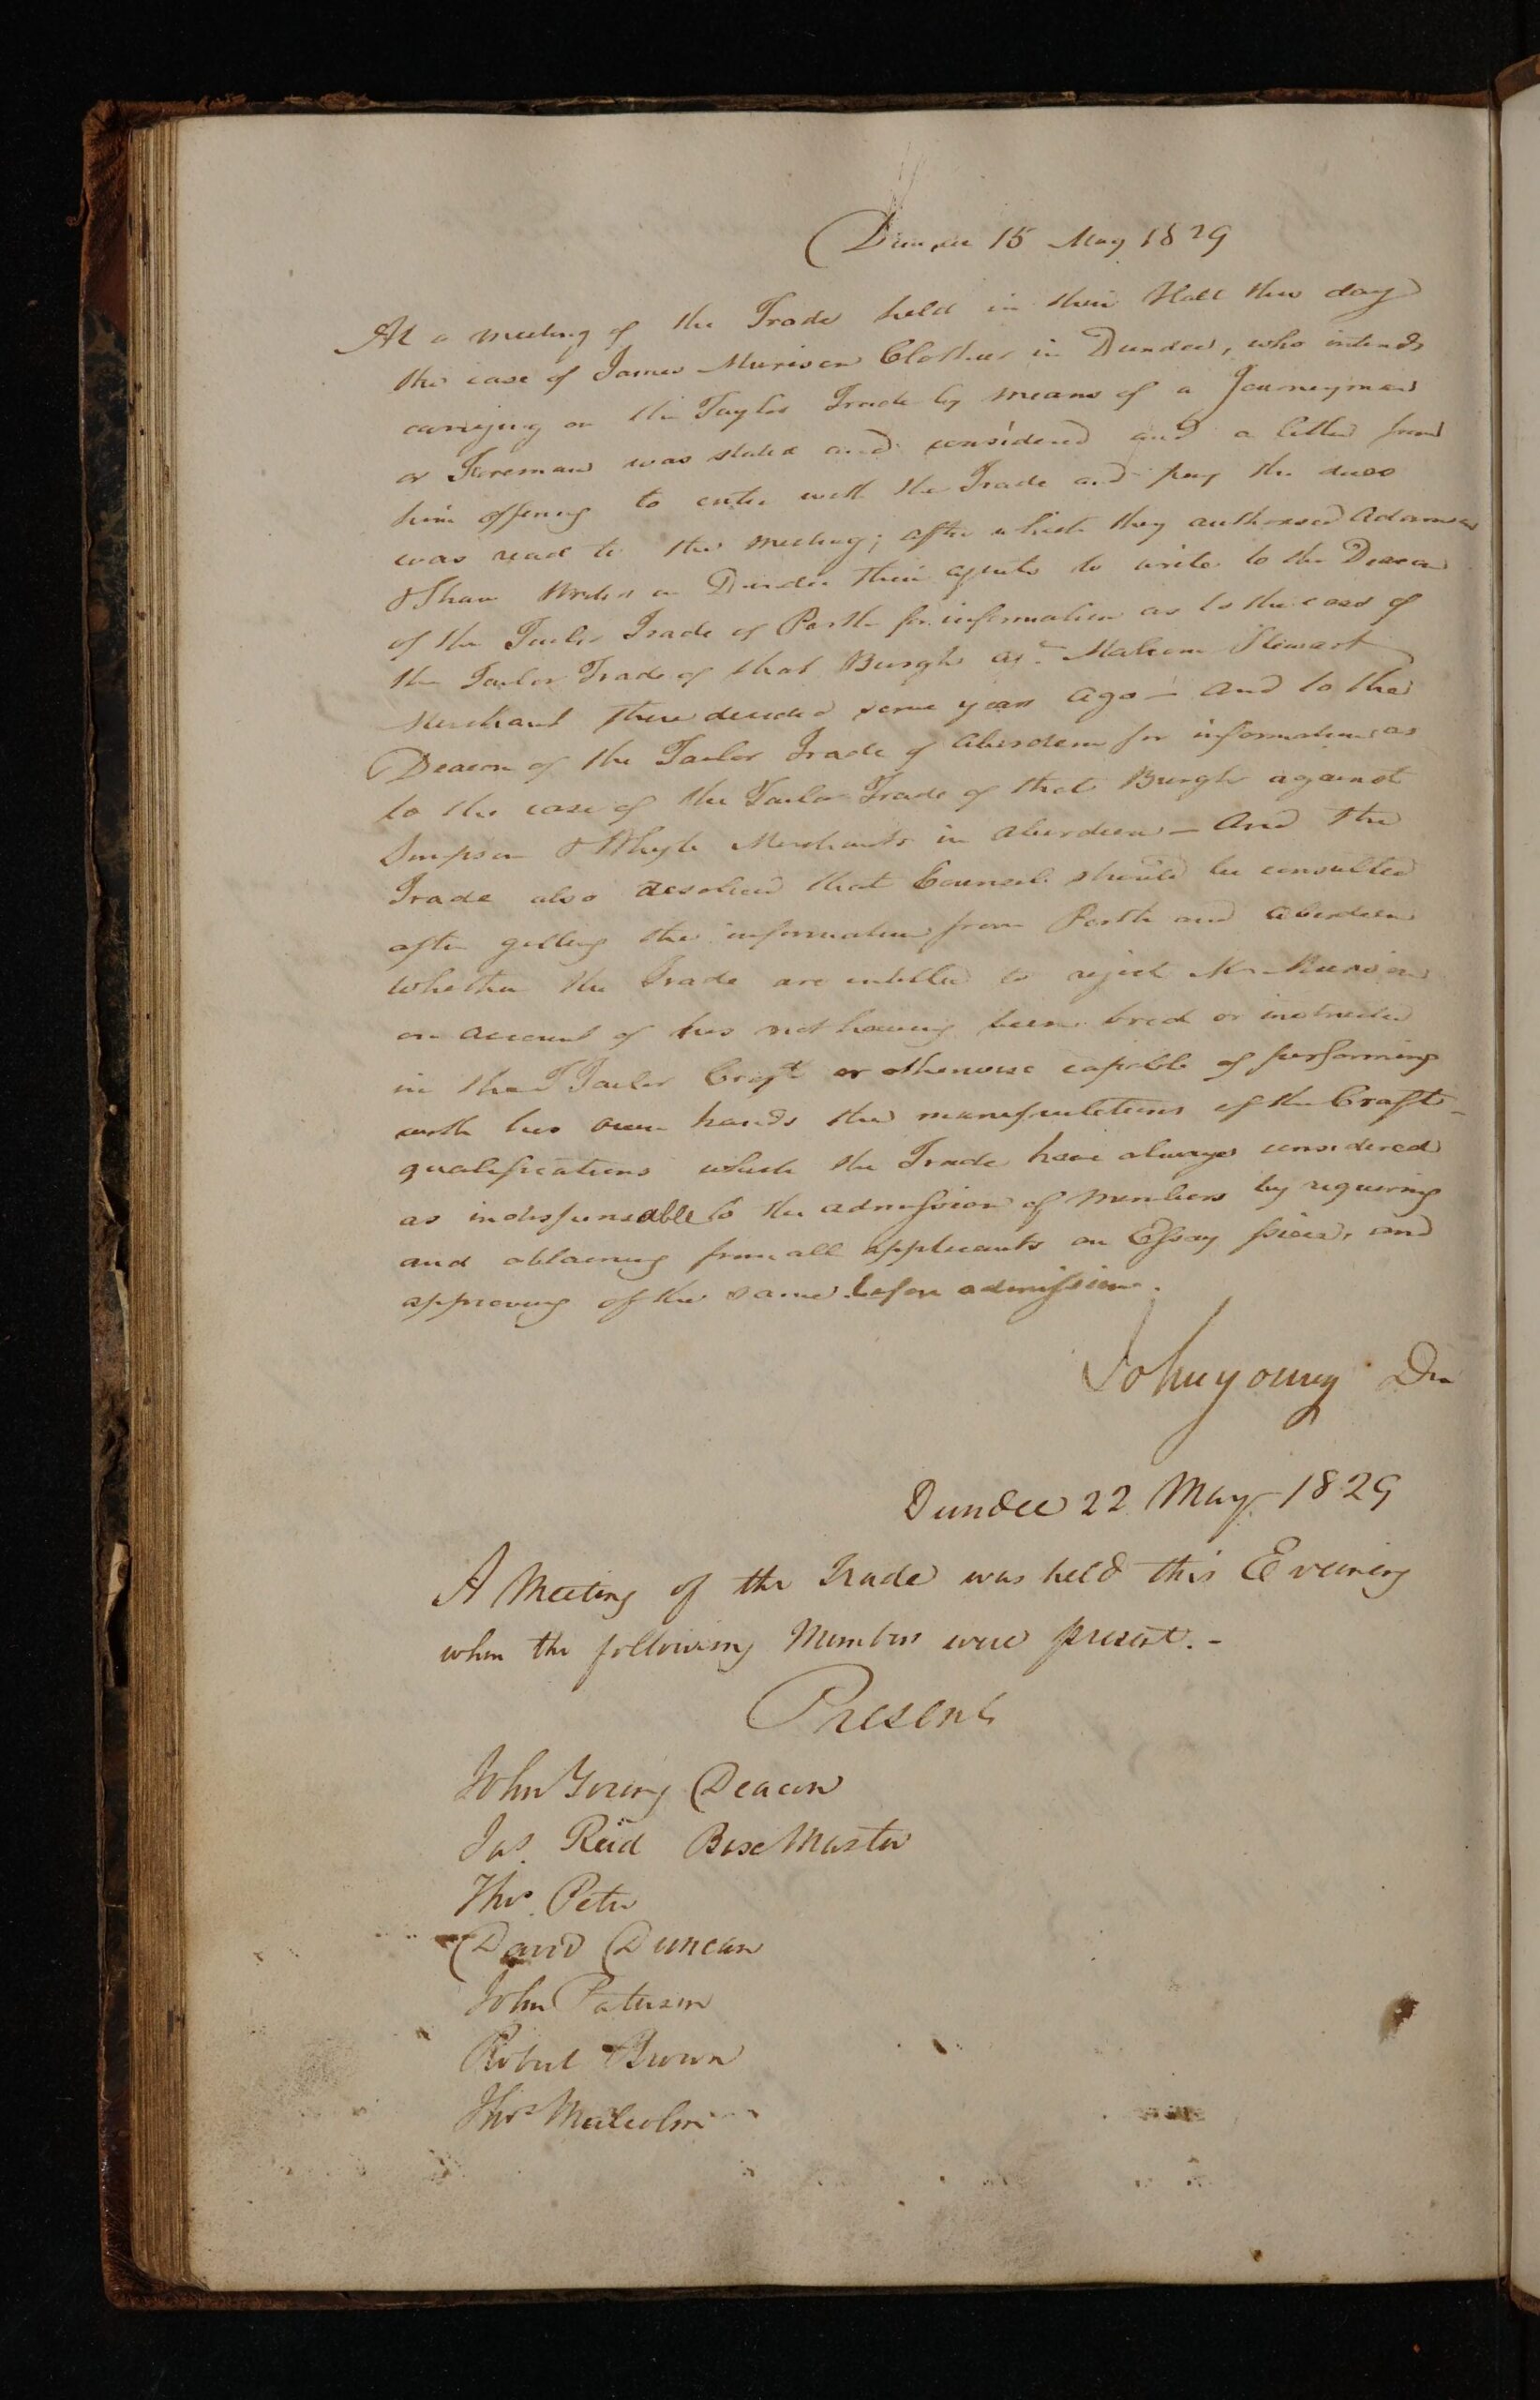 Dundee 15 May 1829
At a meeting of the Trade held in their Hall this day
the case of James Murison Clothier in Dundee, who intends
carrying on the Taylor Trade by means of a Journeyman
or Foreman was stated and considered and a letter from
him offering to enter with the Trade and pay the dues
was read to the meeting; after which they authorised Adamson
& Shaw Writers in Dundee their agents to write to the Deacon
of the Tailor Trade of Perth for information as to the case of
the Tailor Trade of that Burgh agt. Malcom Stewart
Merchant there decided some years ago – and to the
Deacon of the Tailor Trade of Aberdeen for information as
to the case of the Tailor Trade of that Burgh against
Simpson & Whyte Merchants in Aberdeen – And the
Trade also resolved that Counsel should be consulted
after getting the information from Perth and Aberdeen
Whether the Trade are entitled to reject Mr Murison
on account of his not having been bred or instructed
in the Tailor Craft or otherwise capable of performing
with his own hands the manipulations of the Craft –
qualifications which the Trade have always considered
as indispensable to the admission of Members by requiring
and obtaining from all applicants an Essay piece, and
approving of the same before admission.
John young Dn
Dundee 22 May 1829
A Meeting of the Trade was held this Evening
when the following Members were present. –
Present
John Young Deacon
Jas. Reid Box Master
Thos. Peter
David Duncan
John Paterson
Robert Brown
Thos Malcolm